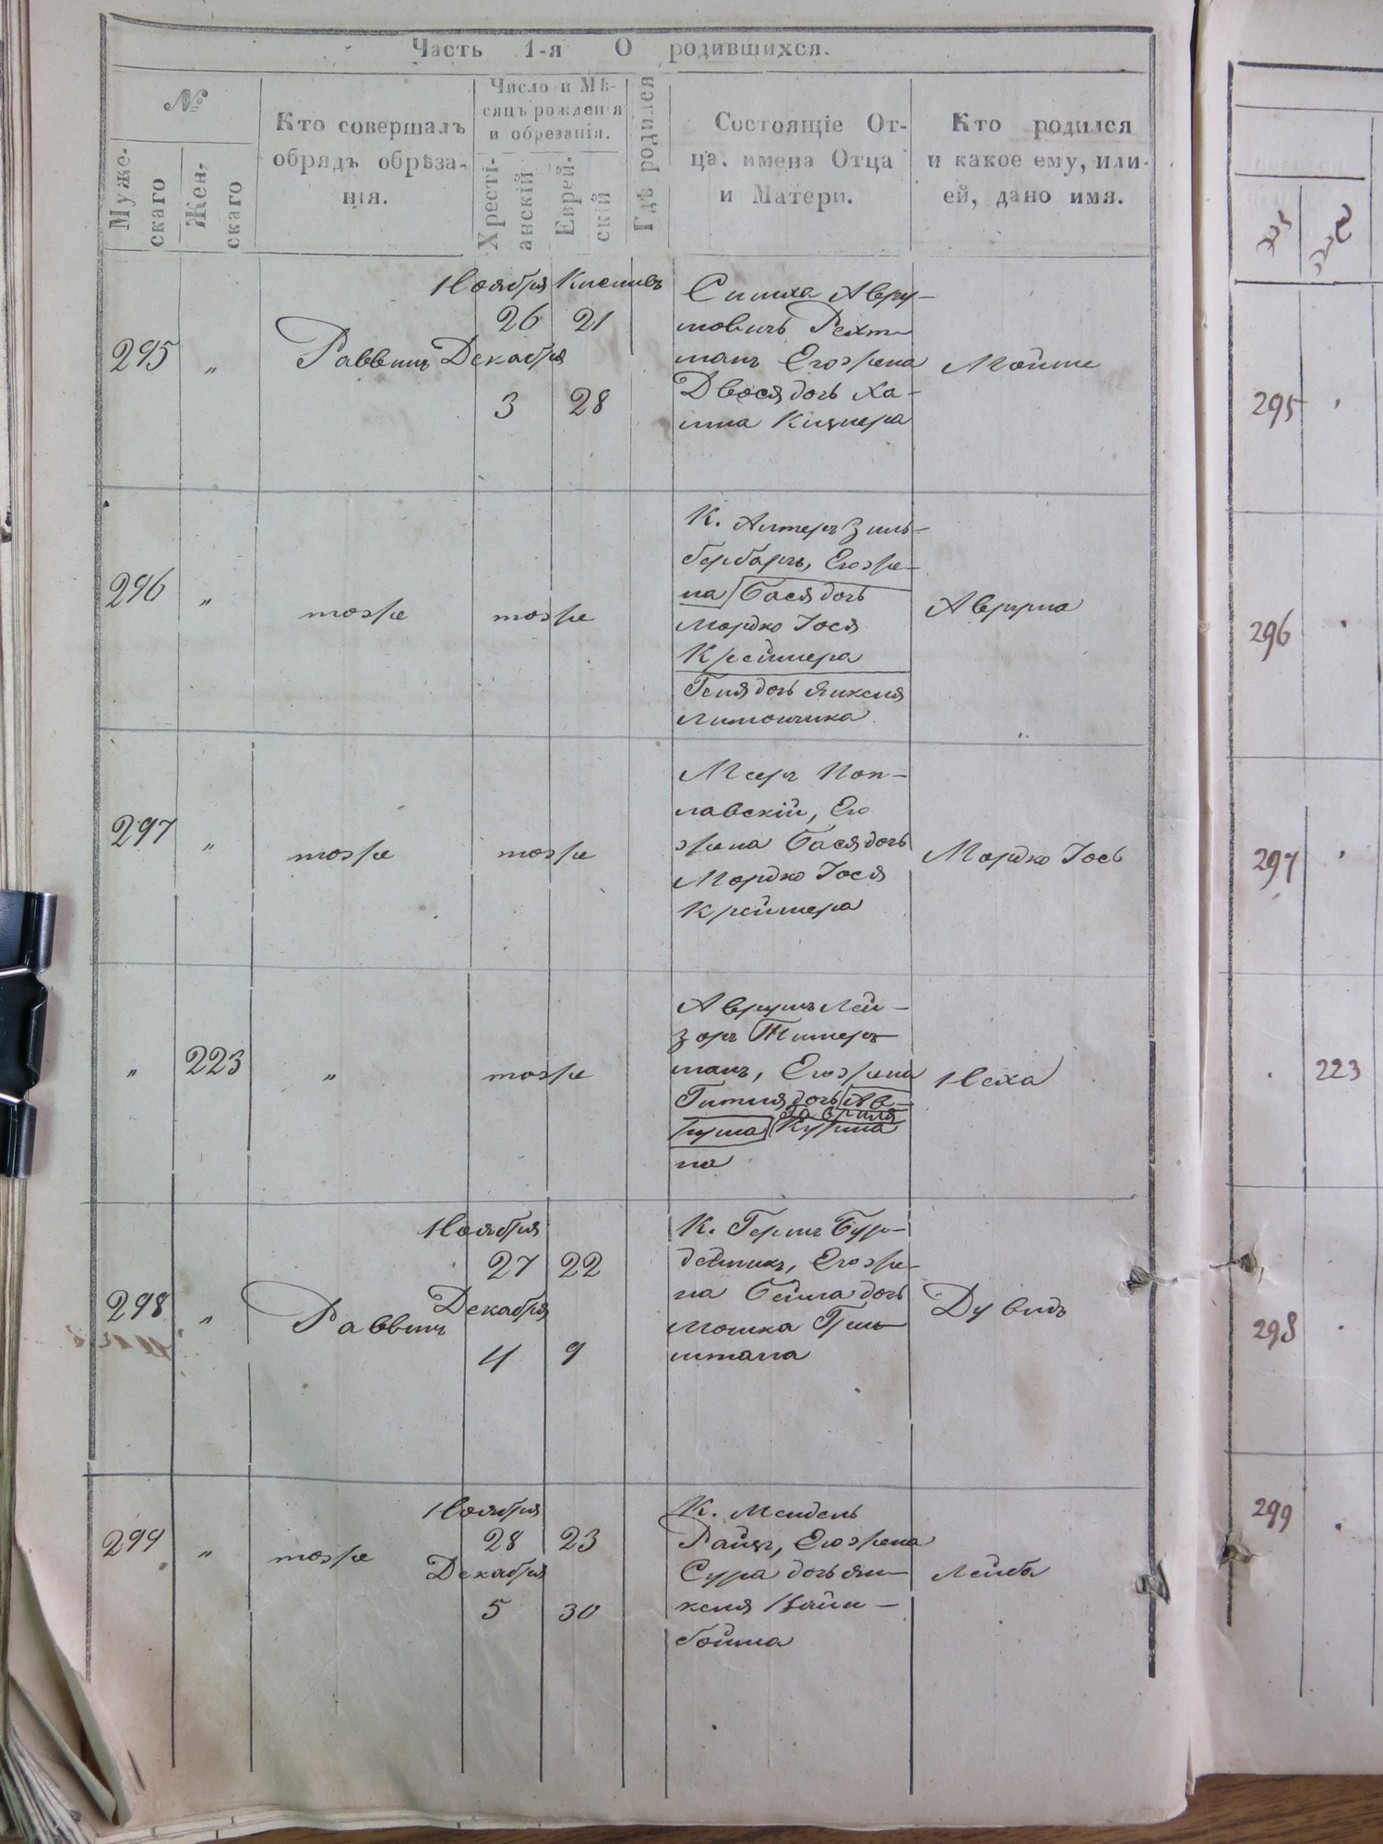 Часть 1-я О родившихся.
№
Муже-
скаго
Жен-
скаго
Кто совершалъ
обрядъ обрѣза-
нія.
Число и Мѣ-
сяцъ рожденія
и обрезанія.
Хресті-
анскій
Еврей-
скій
Гдѣ родился
Состоящіе От-
ца, имена Отца
и Матери.
Кто родился
и какое ему, или
ей, дано имя.
295 „ Раввинъ
Ноября Кисливъ
26 21
Декабря
3 28
Симха Авру-
мовичъ Рехт-
манъ Его жена
Двося дочь Ха-
има
Мойше
295
296 „ тоже тоже
К. Алтеръ Зиль-
бербаръ, Его же-
на Бася дочь
Мордко Іося
Креймера
Геня дочь Янкеля
Лимончика
Аврума
296
297 „ тоже тоже
Меер Поп-
лавскій, Его
жена Бася дочь
Мордко Іося
Креймера
Мордко Іось
297
„ 223 „ тоже
Аврумъ Лей-
зоръ
манъ, Его жена
Гитля дочь Ав-
рума
Гавриля
на
Неха
223
298 „ Раввинъ
Ноября
27 22
Декабря
4 9
К. Герш Бур-
дейникъ, Его же-
на Бейла дочь
Мошка
Дувидъ
298
299 „ тоже
Ноября
28 23
Декабря
5 30
К. Мендель
Райцъ, Его жена
Сура дочь Ян-
келя Вайн-
бойма
Лейба
299